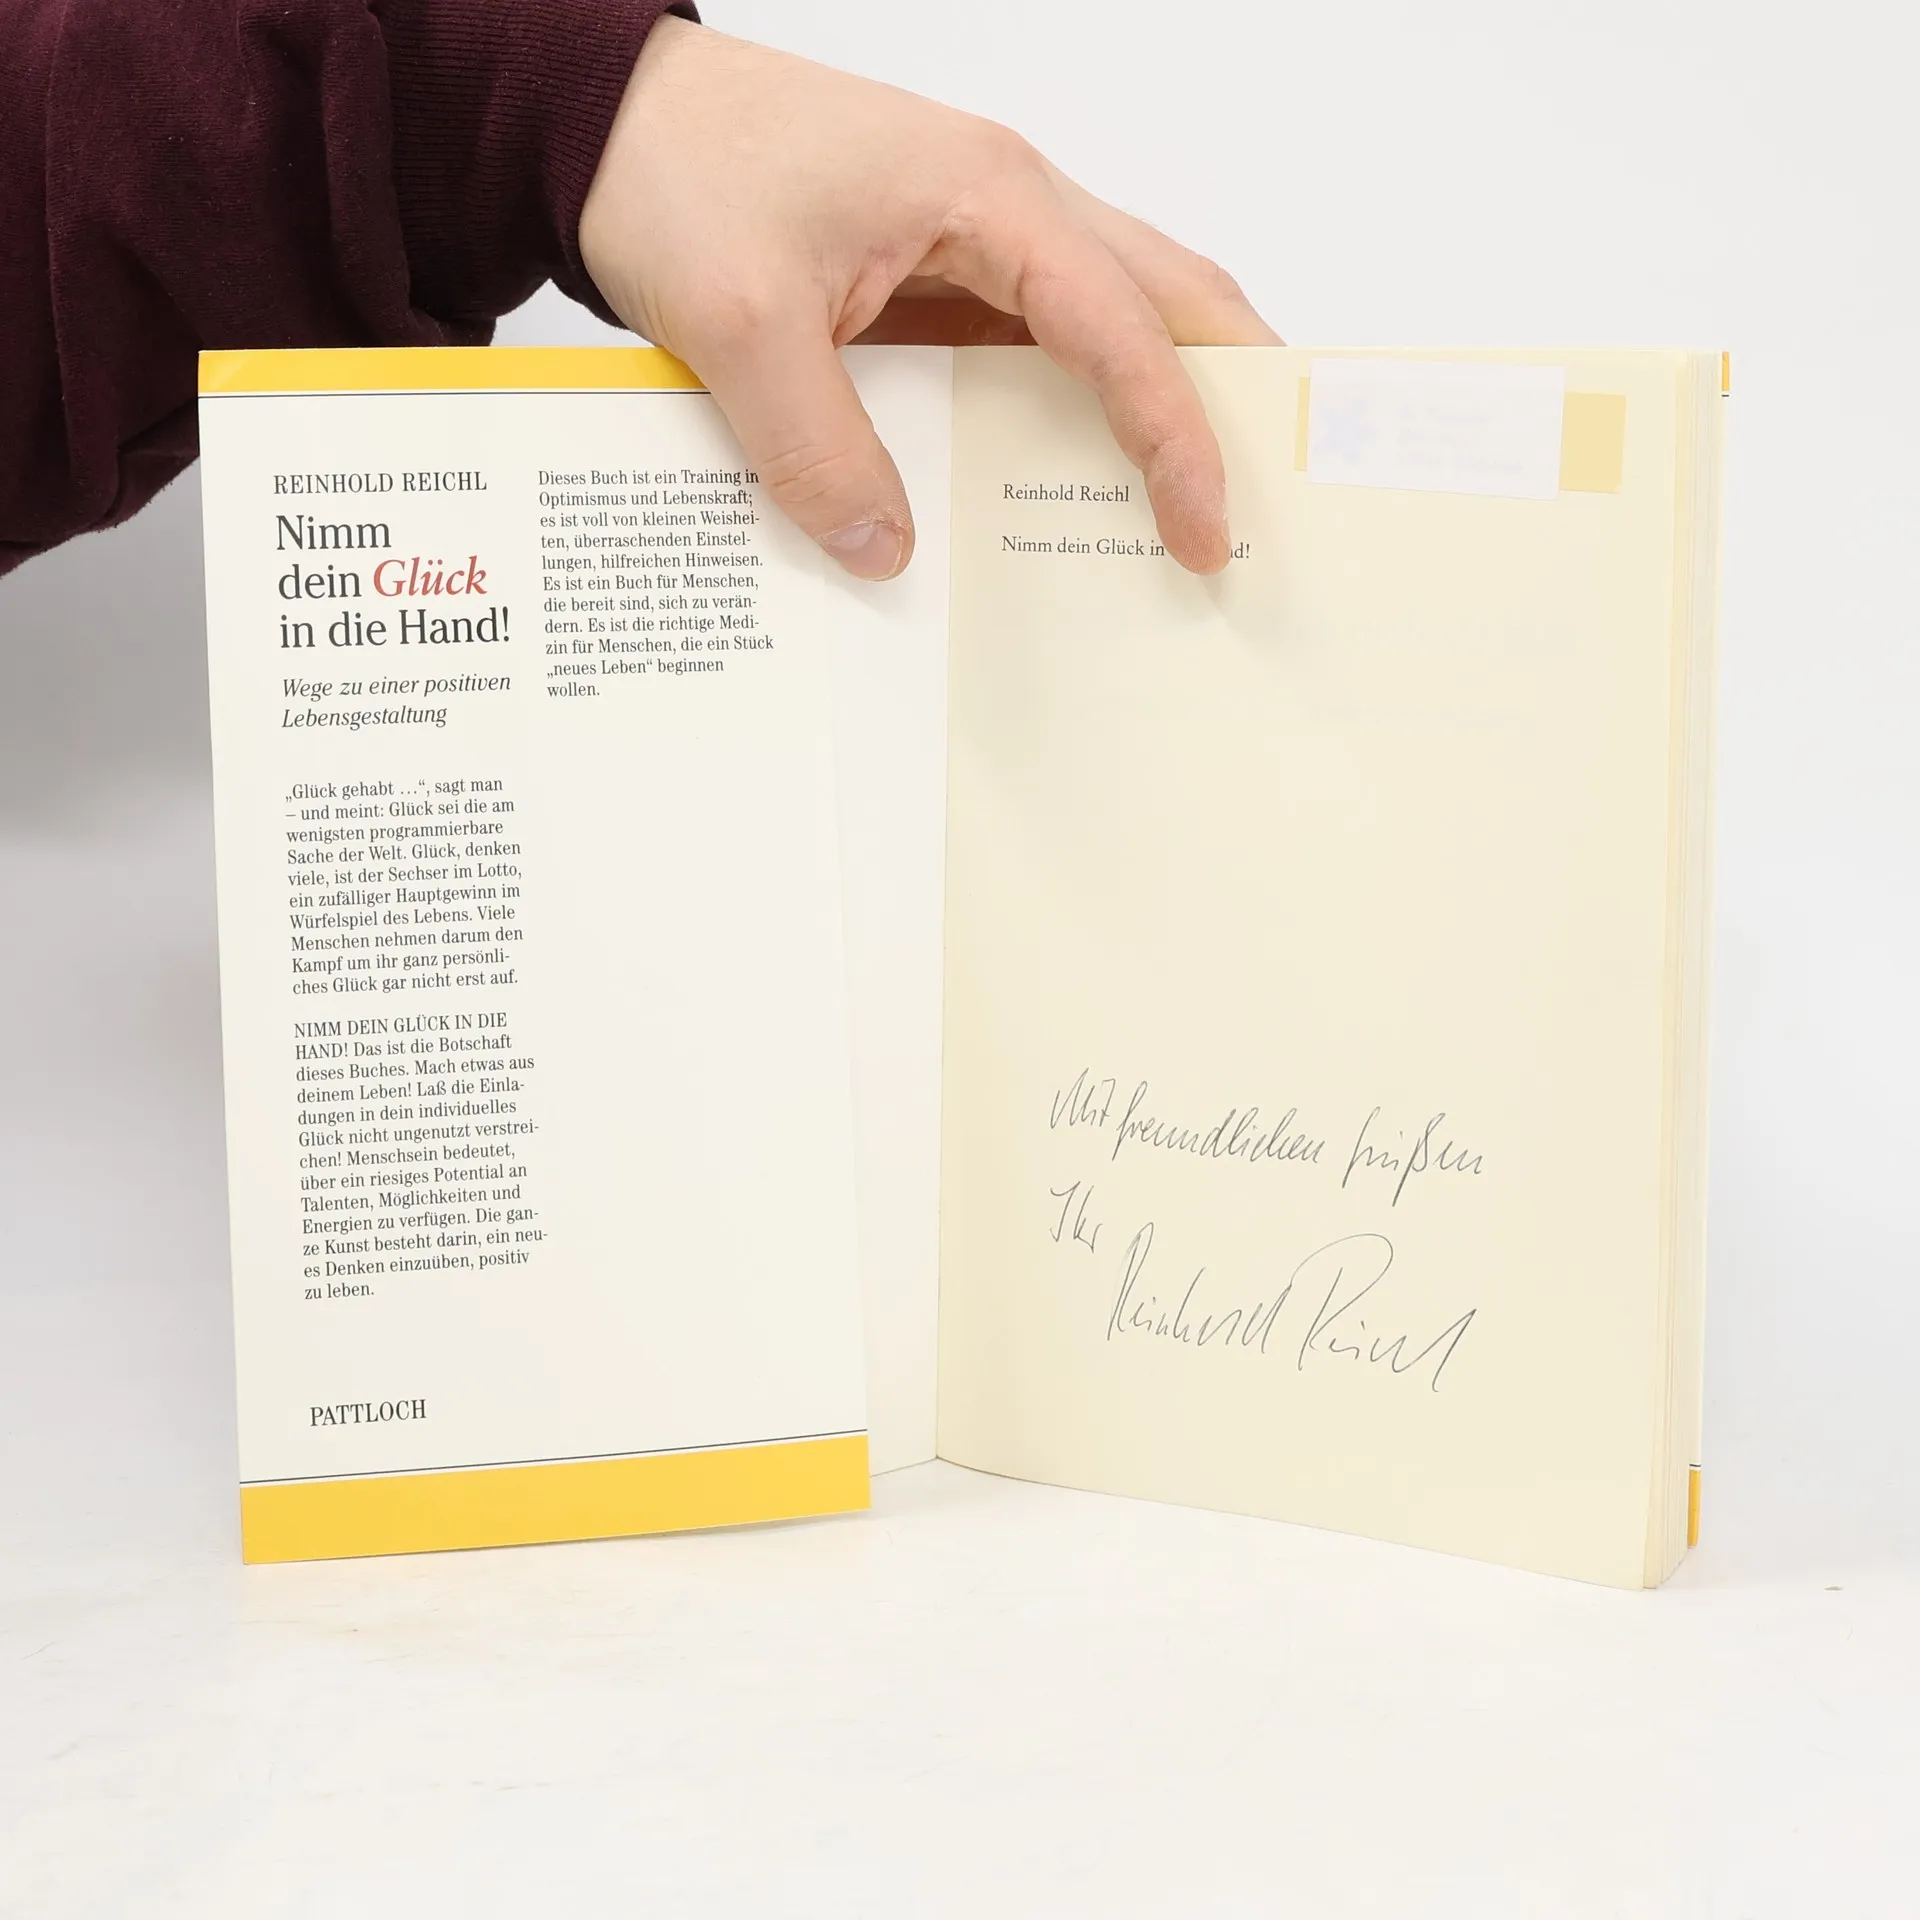 REINHOLD REICHL
Nimm
dein Glück
in die Hand!
Wege zu einer positiven
Lebensgestaltung
„Glück gehabt …“, sagt man
– und meint: Glück sei die am
wenigsten programmierbare
Sache der Welt. Glück, denken
viele, ist der Sechser im Lotto,
ein zufälliger Hauptgewinn im
Würfelspiel des Lebens. Viele
Menschen nehmen darum den
Kampf um ihr ganz persönli-
ches Glück gar nicht erst auf.
NIMM DEIN GLÜCK IN DIE
HAND! Das ist die Botschaft
dieses Buches. Mach etwas aus
deinem Leben! Laß die Einla-
dungen in dein individuelles
Glück nicht ungenutzt verstrei-
chen! Menschsein bedeutet,
über ein riesiges Potential an
Talenten, Möglichkeiten und
Energien zu verfügen. Die gan-
ze Kunst besteht darin, ein neu-
es Denken einzuüben, positiv
zu leben.
PATTLOCH
Dieses Buch ist ein Training in
Optimismus und Lebenskraft;
es ist voll von kleinen Weishei-
ten, überraschenden Einstel-
lungen, hilfreichen Hinweisen.
Es ist ein Buch für Menschen,
die bereit sind, sich zu verän-
dern. Es ist die richtige Medi-
zin für Menschen, die ein Stück
„neues Leben“ beginnen
wollen.
Reinhold Reichl
Nimm dein Glück in
Mit freundlichen Grüßen
Ihr
Reinhold Reichl